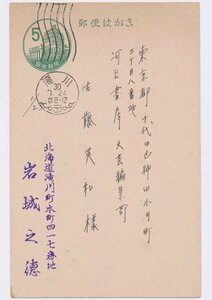 郵便はがき
5
滝川
30
7.24
后8-12
東京都千代田区神田小川町
二丁目八番地
河出書房文芸編集部
佐藤英和様
北海道滝川町本町四一七番地
岩城之徳